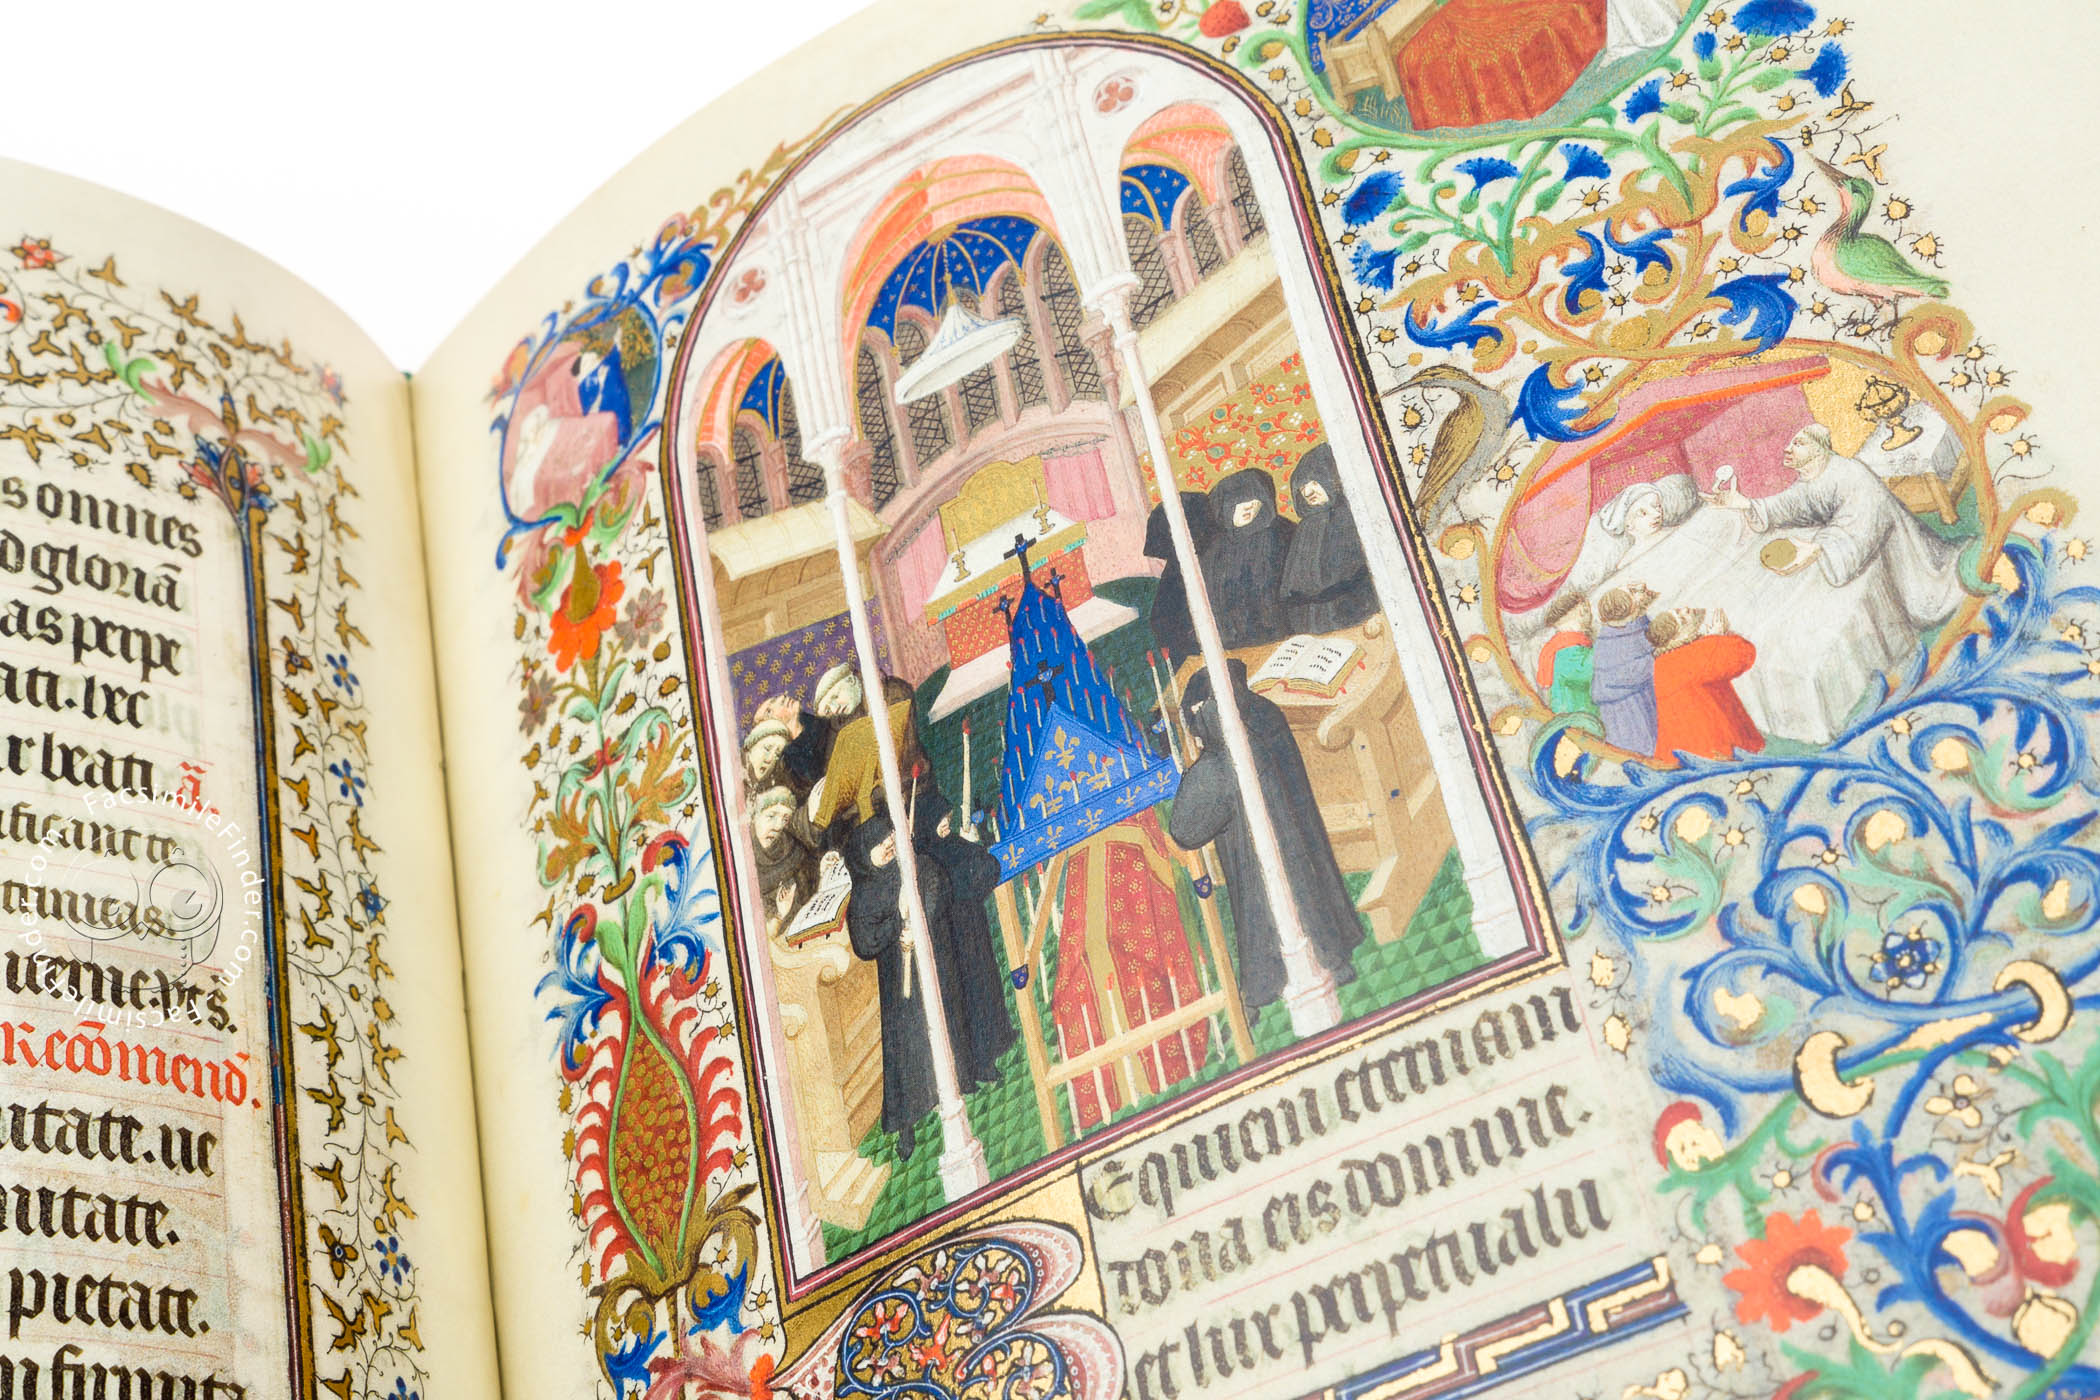 s omnes
d gloriā
as perpe
ati. bec
r beati. ā
ificant te
trinitas.
iterne. vs̄.
Recōmend̄.
nitate. ne
nitate.
pietate.
Equiem eternam
dona eis domine.
et lux perpetua lu
FacsimileFinder.com
FacsimileFinder.com